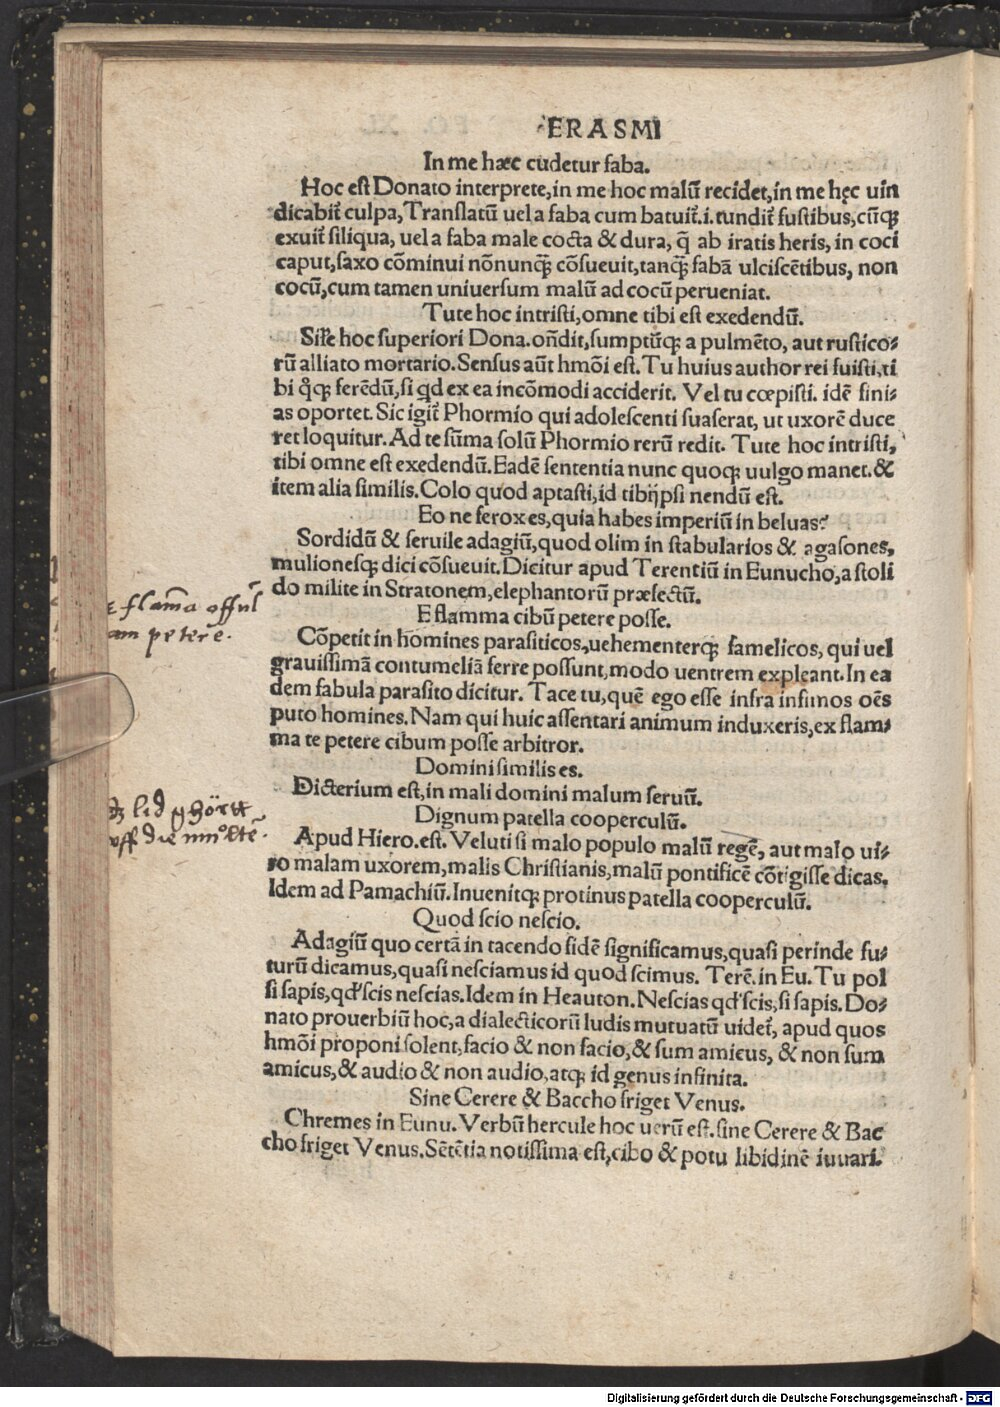 ERASMI
In me hæc cudetur faba.
Hoc est Donato interprete, in me hoc malū recidet, in me hęc uin
dicabit᷑ culpa, Translatū uel a faba cum batuit᷑ .i. tundit᷑ fustibus, cūq;
exuit᷑ siliqua, uel a faba male cocta & dura, q̄ ab iratis heris, in coci
caput, saxo cōminui nōnunq̄ cōsueuit, tanq̄ fabā ulciscētibus, non
cocū, cum tamen uniuersum malū ad cocū perueniat.
Tute hoc intristi, omne tibi est exedendū.
Sil'e hoc superiori Dona. oñdit, sumptūq; a pulmēto, aut rustico⸗
rū alliato mortario. Sensus aūt hmōi est. Tu huius author rei fuisti, ti
bi qͦq; ferēdū, si qd ex ea incōmodi acciderit. Vel tu cœpisti. idē fini⸗
as oportet. Sic igit᷑ Phormio qui adolescenti suaserat, ut uxorē duce
ret loquitur. Ad te sūma solū Phormio rerū redit. Tute hoc intristi,
tibi omne est exedendū. Eadē sententia nunc quoq; uulgo manet. &
item alia similis. Colo quod aptasti, id tibijpsi nendū est.
Eo ne ferox es, quia habes imperiū in beluas?
Sordidū & seruile adagiū, quod olim in stabularios & agasones,
mulionesq; dici cōsueuit. Dicitur apud Terentiū in Eunucho, a stoli
do milite in Stratonem, elephantorū præfectū.
E flamma cibū petere posse.
Cōpetit in homines parasiticos, uehementerq; famelicos, qui uel
grauissimā contumeliā ferre possunt, modo uentrem expleant. In ea
dem fabula parasito dicitur. Tace tu, quē ego esse infra infimos oēs
puto homines. Nam qui huic assentari animum induxeris, ex flam⸗
ma te petere cibum posse arbitror.
Domini similis es.
Dicterium est, in mali domini malum seruū.
Dignum patella cooperculū.
Apud Hiero. est. Veluti si malo populo malū regē, aut malo ui⸗
ro malam uxorem, malis Christianis, malū pontificē cōtigisse dicas.
Idem ad Pamachiū. Inuenitq; protinus patella cooperculū.
Quod scio nescio.
Adagiū quo certā in tacendo fidē significamus, quasi perinde fu⸗
turū dicamus, quasi nesciamus id quod scimus. Terē. in Eu. Tu pol
si sapis, qd' scis nescias. Idem in Heauton. Nescias qd' scis, si sapis. Do⸗
nato prouerbiū hoc, a dialecticorū ludis mutuatū uidet᷑, apud quos
hmōi proponi solent, facio & non facio, & sum amicus, & non sum
amicus, & audio & non audio, atq; id genus infinita.
Sine Cerere & Baccho friget Venus.
Chremes in Eunu. Verbū hercule hoc uerū est. sine Cerere & Bac
cho friget Venus. Sētētia notissima est, cibo & potu libidinē iuuari.
e flam̄a
am petere.
lid ghört
vff die
Digitalisierung gefördert durch die Deutsche Forschungsgemeinschaft - DFG